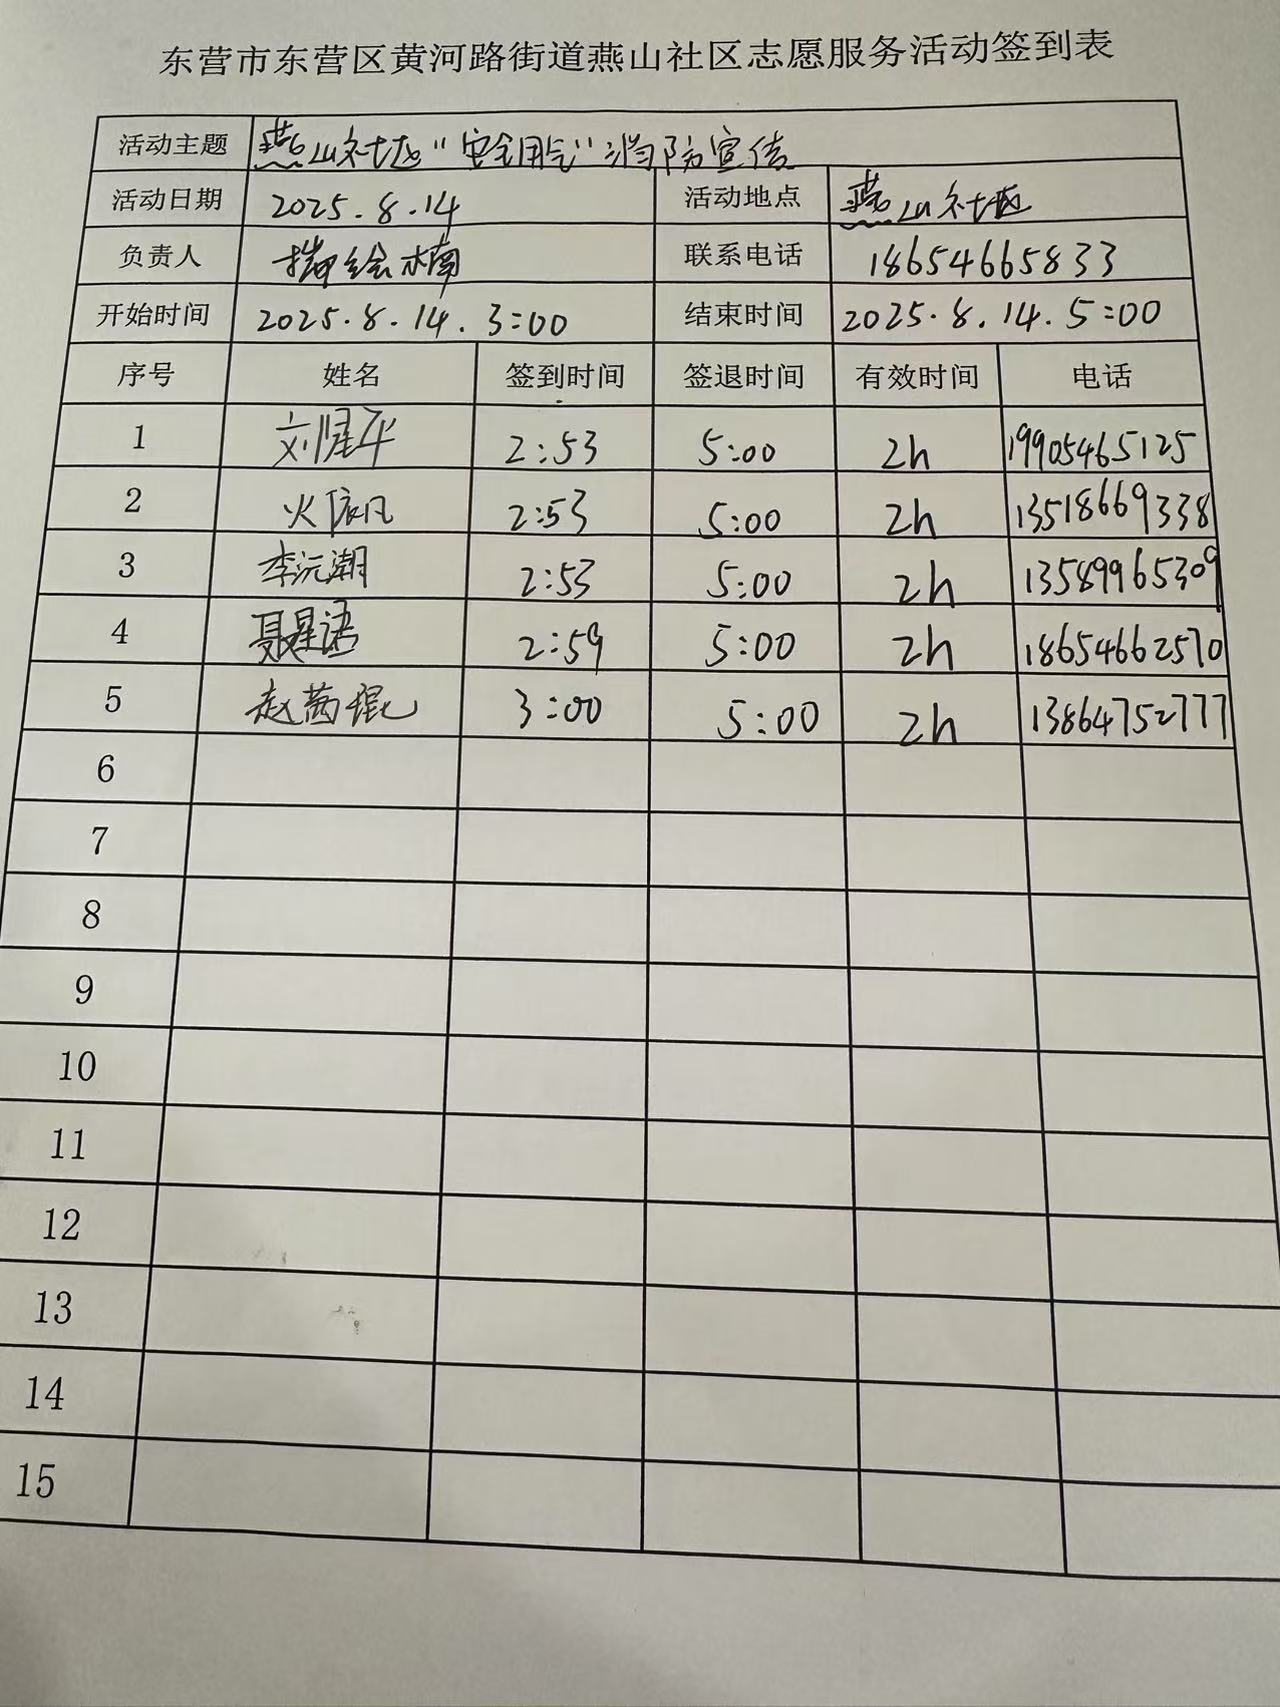 东营市东营区黄河路街道燕山社区志愿服务活动签到表
活动主题 燕山社区“安全用气”消防宣传
活动日期 2025.8.14 活动地点 燕山社区
负责人 联系电话 18654665833
开始时间 2025.8.14.3:00 结束时间 2025.8.14.5:00
序号 姓名 签到时间 签退时间 有效时间 电话
1 2:53 5:00 2h 19905465125
2 2:53 5:00 2h 13518669338
3 李沅潮 2:53 5:00 2h 13589965309
4 聂星语 2:59 5:00 2h 18654662570
5 赵茜琨 3:00 5:00 2h 13864752777
6
7
8
9
10
11
12
13
14
15